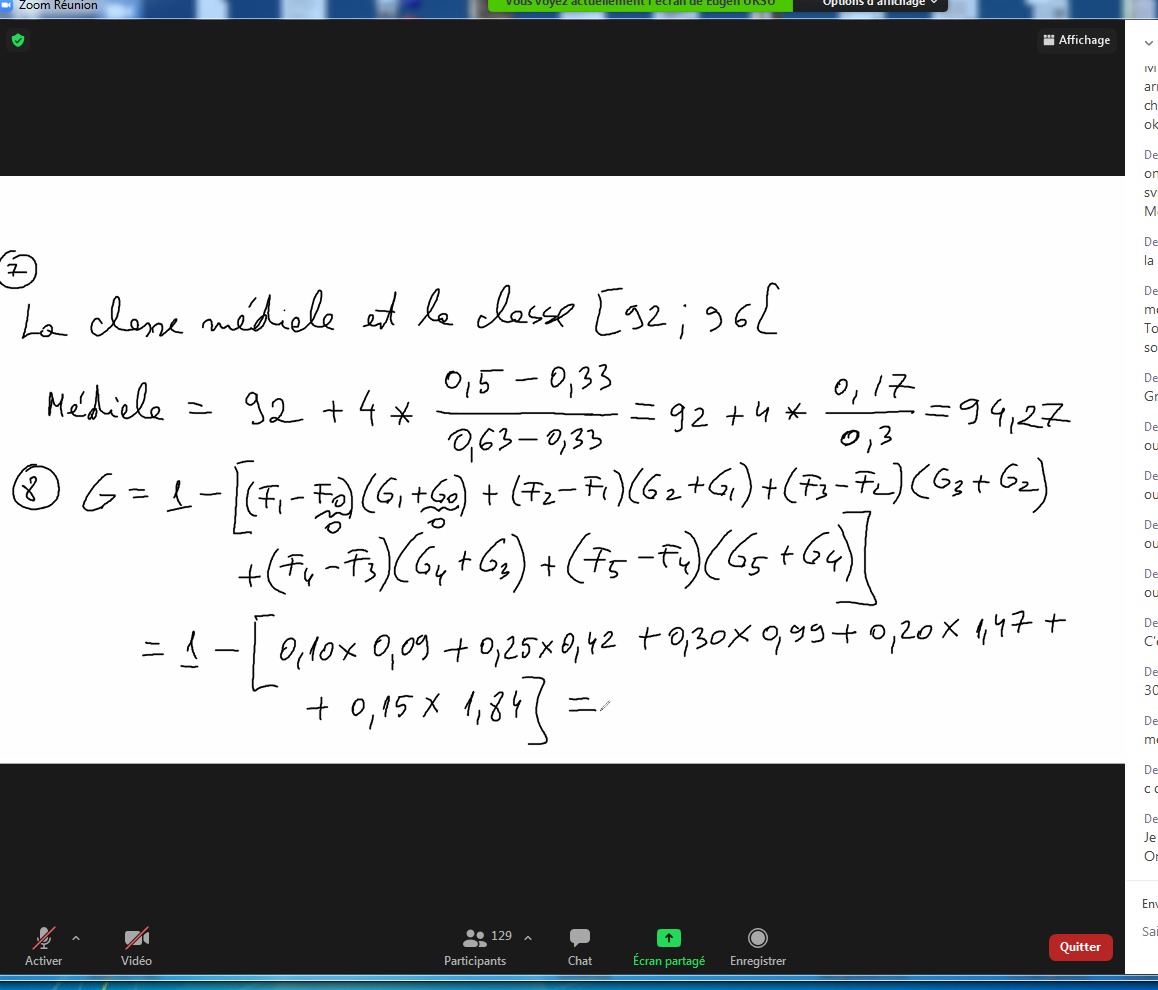 Zoom Réunion
Vous voyez actuellement l'écran de Eugen URSU
Options d'affichage
Affichage
7
La classe médiale est la classe [92 ; 96[
Médiale = 92 + 4 * (0,5 - 0,33)/(0,63 - 0,33) = 92 + 4 * 0,17/0,3 = 94,27
8 G = 1 - [(F₁ - F₀)(G₁ + G₀) + (F₂ - F₁)(G₂ + G₁) + (F₃ - F₂)(G₃ + G₂)
0 0
+ (F₄ - F₃)(G₄ + G₃) + (F₅ - F₄)(G₅ + G₄)]
= 1 - [0,10 × 0,09 + 0,25 × 0,42 + 0,30 × 0,99 + 0,20 × 1,47 +
+ 0,15 × 1,84] =
ch
ok
De
on
sv
De
la
De
To
so
De
Gr
De
ou
De
ou
De
ou
De
ou
De
C'
De
30
De
De
c
De
Je
Env
Sai
Activer
Vidéo
129
Participants
Chat
Écran partagé
Enregistrer
Quitter